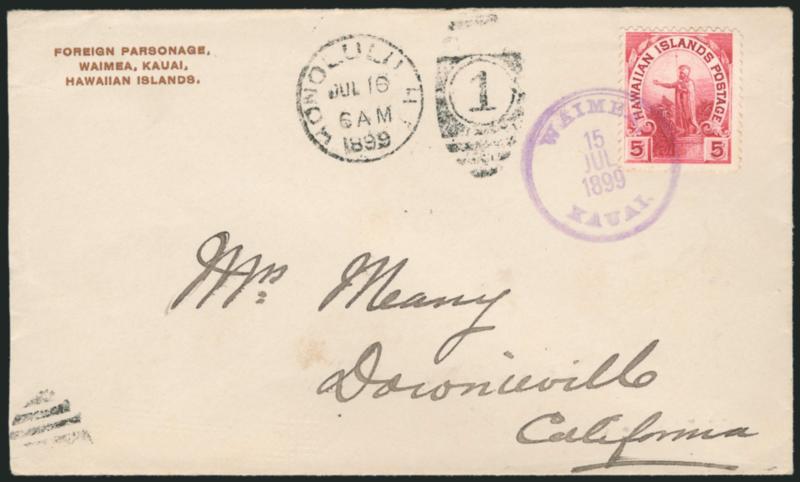 FOREIGN PARSONAGE,
WAIMEA, KAUAI,
HAWAIIAN ISLANDS.
HONOLULU H.I.
JUL 16
6 AM
1899
1
WAIMEA
15
JUL
1899
KAUAI.
HAWAIIAN ISLANDS POSTAGE
5 5
Mrs. Meany
Downieville
California